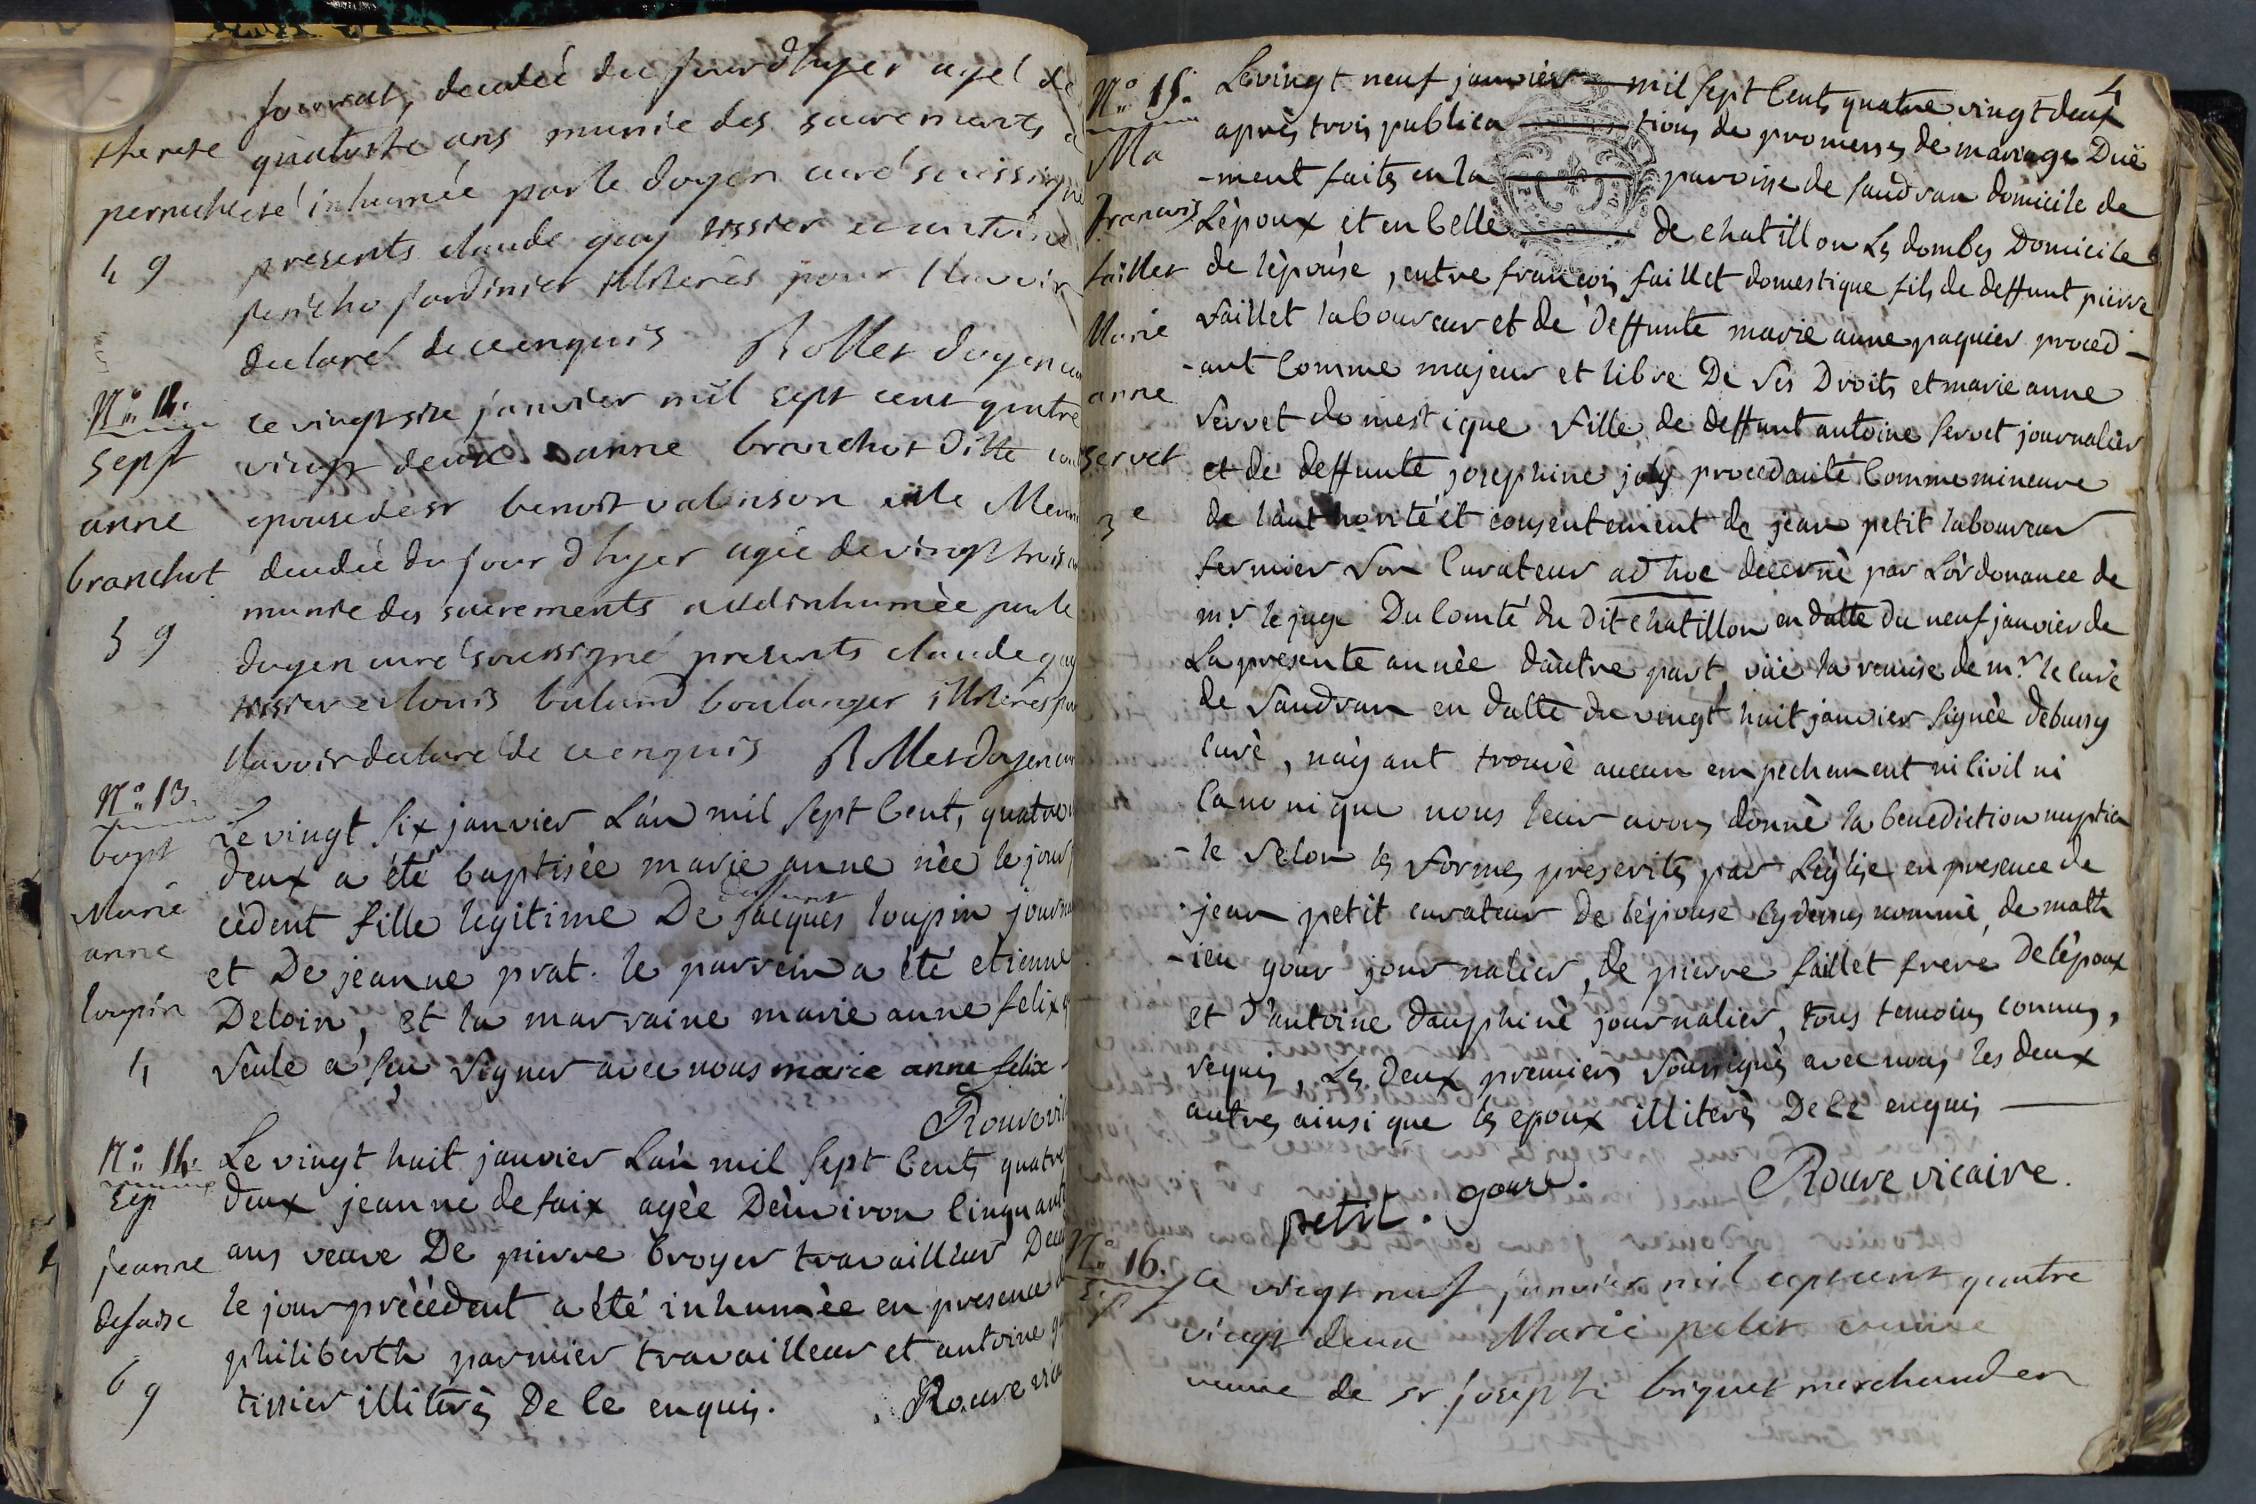 journal, decedeé du jour d'hyer ageé de
therese quatorze ans munie des sacrements a
perruche eté inhumée par le doyen curé soussigné
4 9 presents claude guy tissier et antoine
jericho jardinier illiterés pour l'avoir
declaré de ce enquis Rollet doyen cu
N.o 12. ce vingt six janvier mil sept cent quatre
sept vingt deux anne branchot ditte
anne epouse de sr benoit valenson
branchot decedée du jour d'hyer agée de vingt trois
munie des sacrements a eté inhumèe par le
5 9 doyen curé soussigné presents claude guy
tissier et louis balund boulanger illiterés pour
l'avoir declaré de ce enquis Rollet doyen cur
N.o 13. Le vingt six janvier L'an mil sept Cents quatre v
bapt deux a été baptisée marie anne née le jour p
Marie cèdent fille legitime De deffunt jacques loupin journa
anne et De jeanne prat. le parrein a été etienne
loupin Deloin, et la marraine marie anne felix q
4 seule a sçu signer avec nous marie anne felix
Rouve vic
N.o 14. Le vingt huit janvier L'an mil sept Cents quatre
sep deux jeanne defaix agèe D'environ Cinquante
jeanne ans veuve De pierre broyer travailleur Deced
defaix le jour prècèdent a été inhumèe en presence de
6 9 philiberth parmier travailleur et antoine gu
tissier illiterès De Ce enquis. Rouve vica
4
N.o 15. Le vingt neuf janvier mil sept Cents quatre vingt deux
Ma après trois publications de promesses de mariage Duë
-ment faites en la paroisse de sandran domicile de
francois L'èpoux et en Celle de chatillon Les dombes Domicile
faillet de l'èpouse, entre francois faillet domestique fils de deffunt pierre
faillet laboureur et de Deffunte marie anne paquier proced-
Marie -ant Comme majeur et libre De ses Droits et marie anne
anne servet domestique fille de deffunt antoine servet journalier
servet et de deffunte josephine joly procedante Comme mineure
3e de l'authorité et consentement de jean petit laboureur
fermier son Curateur ad hoc decernè par L'ordonance de
mr. le juge Du Comté du Dit chatillon en datte du neuf janvier de
La presente annèe d'autre part vüe la remise de mr. le Curè
de sandran en datte du vingt huit janvier signèe debussy
Curè, n'ayant trouvè aucun empechement ni Civil ni
Canonique nous leur avons donnè la benediction nuptia
-le selon les formes prescrites par L'èglise en presence de
jean petit curateur de l'èpouse Cydessus nommè, de math
-ieu gour journalier, de pierre faillet frere De l'èpoux
et D'antoine dauphinè journalier, tous temoins connus,
requis, Les deux premiers soussignès avec nous les deux
autres ainsi que les epoux illiterès De Ce enquis
petit. goure. Rouve vicaire.
N.o 16. ce vingt neuf janvier mil sept cent quatre
sep vingt deux Marie petit
veuve de sr joseph briquet merchand en